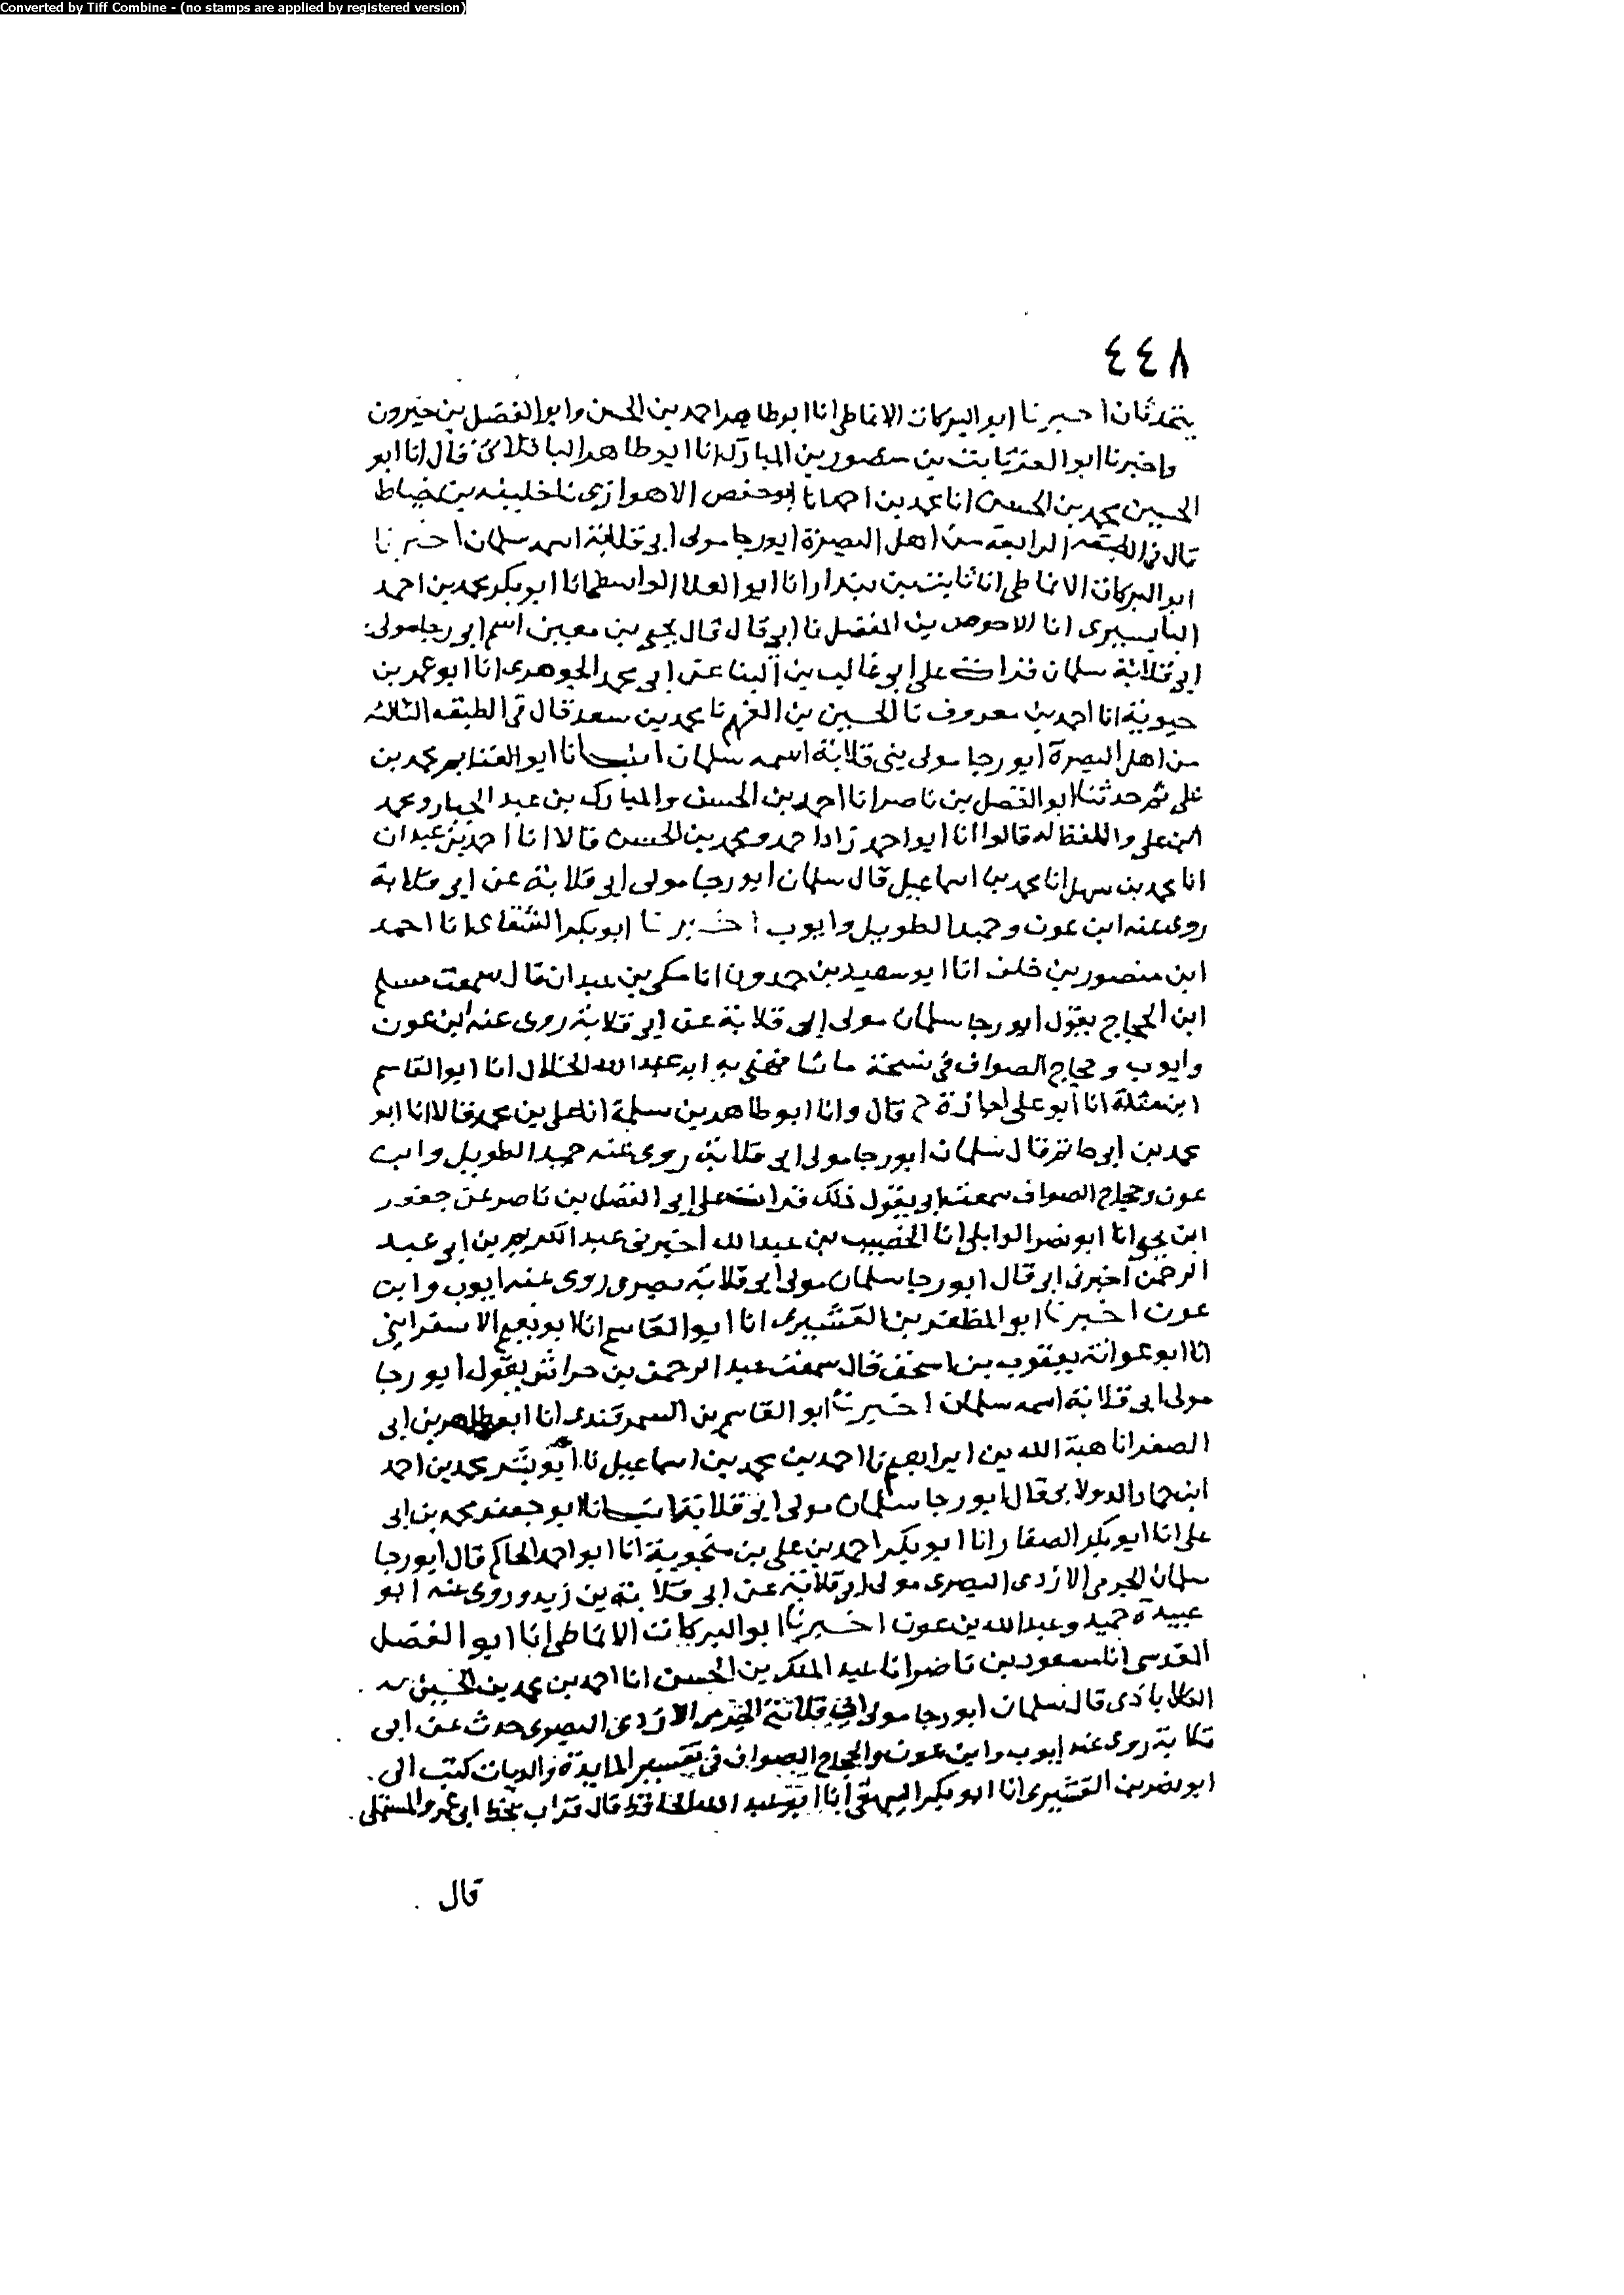 Converted by Tiff Combine - (no stamps are applied by registered version)
٤٤٨
يتحدثان اخبرنا ابو البركات الانماطى انا ابو طاهر احمد بن الحسن وابو الفضل بن خيرون
واخبرنا ابو العز ثابت بن منصور بن المبارك انا ابو طاهر الباقلانى قال انا ابو
الحسين محمد بن الحسن انا محمد بن احمد انا ابو حفص الاهوازى نا خليفه بن خياط
قال فى الطبقه الرابعة من اهل البصرة ابو رجا مولى ابى قلابة اسمه سلمان اخبرنا
ابو البركات الانماطى انا ثابت بن بندار انا ابو العلا الواسطى انا ابو بكر محمد بن احمد
البابسيرى انا الاحوص بن المفضل نا ابى قال قال يحيى بن معين اسم ابى رجا مولى
ابى قلابة سلمان قرات على ابى غالب بن البنا عن ابى محمد الجوهرى انا ابو عمر بن
حيوية انا احمد بن معروف نا الحسين بن الفهم نا محمد بن سعد قال فى الطبقه الثالثه
من اهل البصرة ابو رجا مولى بنى قلابة اسمه سلمان انبانا ابو الغنايم محمد بن
على ثم حدثنا ابو الفضل بن ناصر انا احمد بن الحسن والمبارك بن عبد الجبار ومحمد
ابن على واللفظ له قالوا انا ابو احمد زاد احمد ومحمد بن الحسن قالا انا احمد بن عبدان
انا محمد بن سهل انا محمد بن اسماعيل قال سلمان ابو رجا مولى ابى قلابة عن ابى قلابة
روى عنه ابن عون وحميد الطويل وايوب اخبرنا ابو بكر الشقانى انا احمد
ابن منصور بن خلف انا ابو سعيد بن حمدون انا مكى بن عبدان قال سمعت مسلم
ابن الحجاج يقول ابو رجا سلمان مولى ابى قلابة عن ابى قلابة روى عنه ابن عون
وايوب وحجاج الصواف فى نسخة ما شافهنى به ابو عبد الله الخلال انا ابو القاسم
ابن مندة انا ابو على اجازة ح قال وانا ابو طاهر بن سلمة انا على بن محمد قالا انا ابو
محمد بن ابى حاتم قال سلمان ابو رجا مولى ابى قلابة روى عنه حميد الطويل وابن
عون وحجاج الصواف سمعت ابى يقول ذلك قرات على ابى الفضل بن ناصر عن جعفر
ابن يحيى انا ابو نصر الوايلى انا الخصيب بن عبد الله اخبرنى عبد الكريم بن ابى عبد
الرحمن اخبرنى ابى قال ابو رجا سلمان مولى ابى قلابة بصرى روى عنه ايوب وابن
عون اخبرنا ابو المظفر بن القشيرى انا ابو القاسم انا ابو نعيم الاسفراينى
انا ابو عوانة يعقوب بن اسحق قال سمعت عبد الرحمن بن خراش يقول ابو رجا
مولى ابى قلابة اسمه سلمان اخبرنا ابو القاسم بن السمرقندى انا ابو طاهر بن ابى
الصقر انا هبة الله بن ابراهيم نا احمد بن محمد بن اسماعيل نا ابو بشر محمد بن احمد
ابن حماد الدولابى قال ابو رجا سلمان مولى ابى قلابة انبانا ابو جعفر محمد بن ابى
على انا ابو بكر الصفار انا ابو بكر احمد بن على بن منجوية انا ابو احمد الحاكم قال ابو رجا
سلمان الجرمى الازدى البصرى مولى ابى قلابة عن ابى قلابة بن زيد وروى عنه ابو
عبيدة حميد وعبد الله بن عون اخبرنا ابو البركات الانماطى انا ابو الفضل
القدسى انا مسعود بن ناصر انا عبد الملك بن الحسن انا احمد بن محمد بن الحسين
الكلاباذى قال سلمان ابو رجا مولى ابى قلابة الجرمى الازدى البصرى حدث عن ابى
قلابة روى عنه ايوب وابن عون والحجاج الصواف فى تفسير المايدة والديات كتب الى
ابو نصر بن القشيرى انا ابو بكر البيهقى انا ابو عبد الله الحافظ قال قرات بخط ابى عمرو المستملى
قال